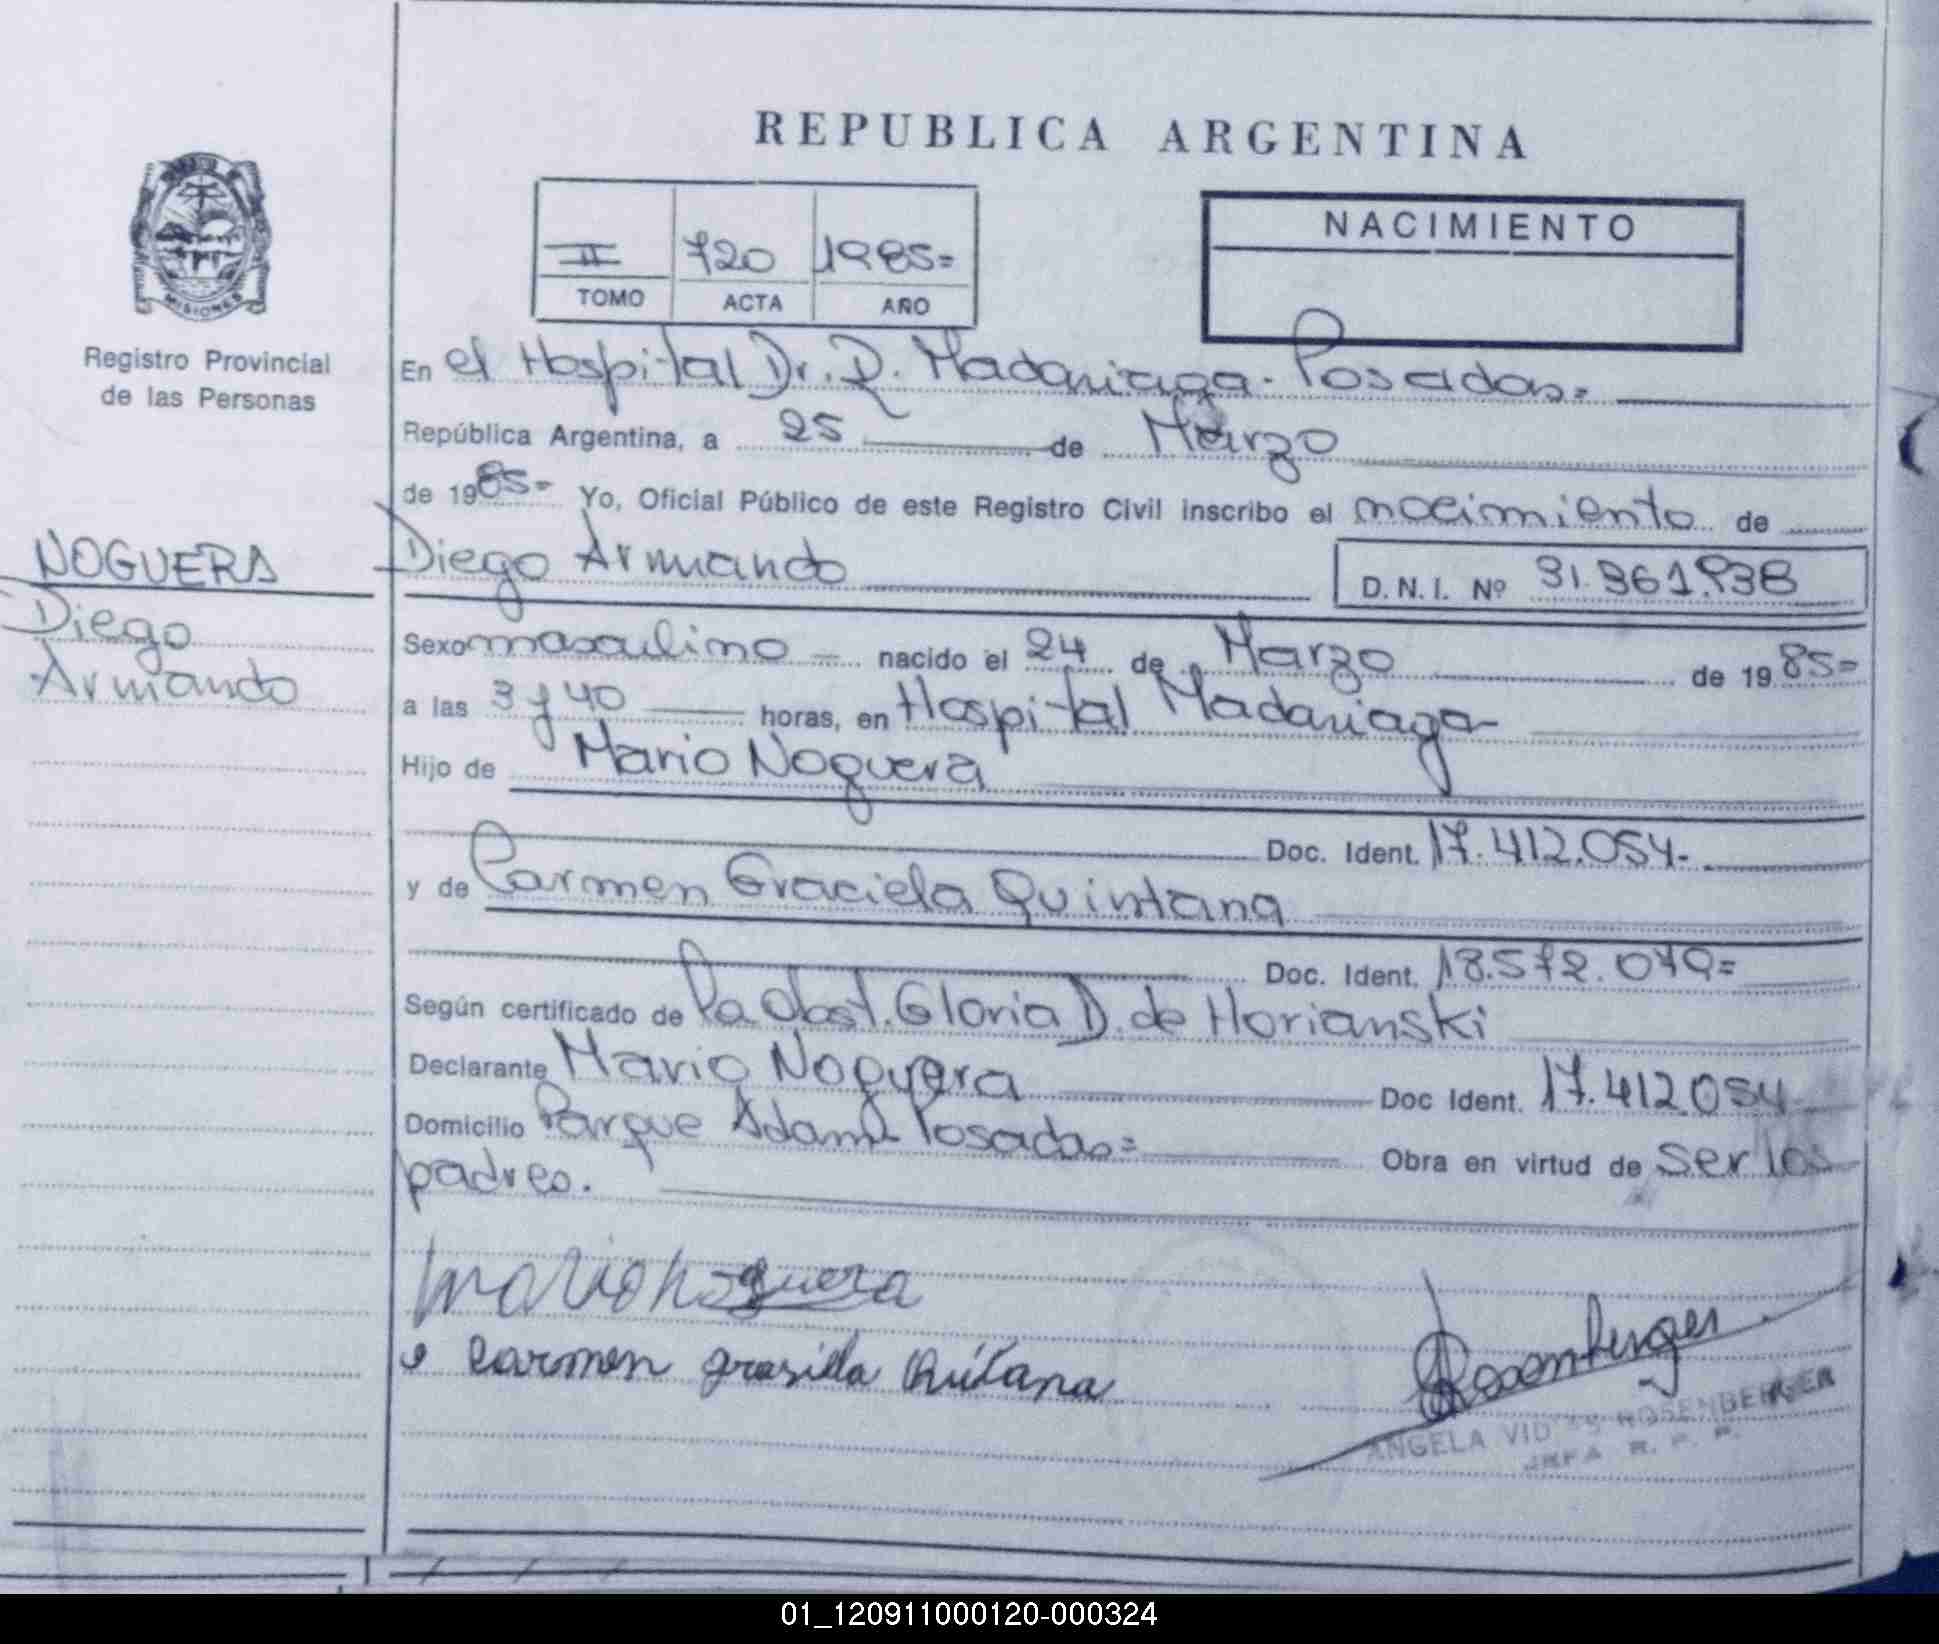 REPUBLICA ARGENTINA
II 720 1985=
TOMO ACTA AÑO
NACIMIENTO
MISIONES
Registro Provincial
de las Personas
En el Hospital Dr. R. Madariaga - Posadas=
República Argentina, a 25 de Marzo
de 1985= Yo, Oficial Público de este Registro Civil inscribo el nacimiento de
NOGUERA
Diego
Armando
Diego Armando
D.N.I. Nº 31.361.938
Sexo masculino nacido el 24 de Marzo de 1985=
a las 3 y 40 horas, en Hospital Madariaga
Hijo de Mario Noguera
Doc. Ident. 17.412.054-
y de Carmen Graciela Quintana
Doc. Ident. 18.572.079=
Según certificado de La Obst. Gloria D. de Horianski
Declarante Mario Noguera Doc Ident. 17.412054
Domicilio Parque Adam- Posadas= Obra en virtud de ser los
padres.
mario noguera
carmen grasiela
Rosenberger
ANGELA ROSENBERGER
JEFA R. P. P.
01_120911000120-000324